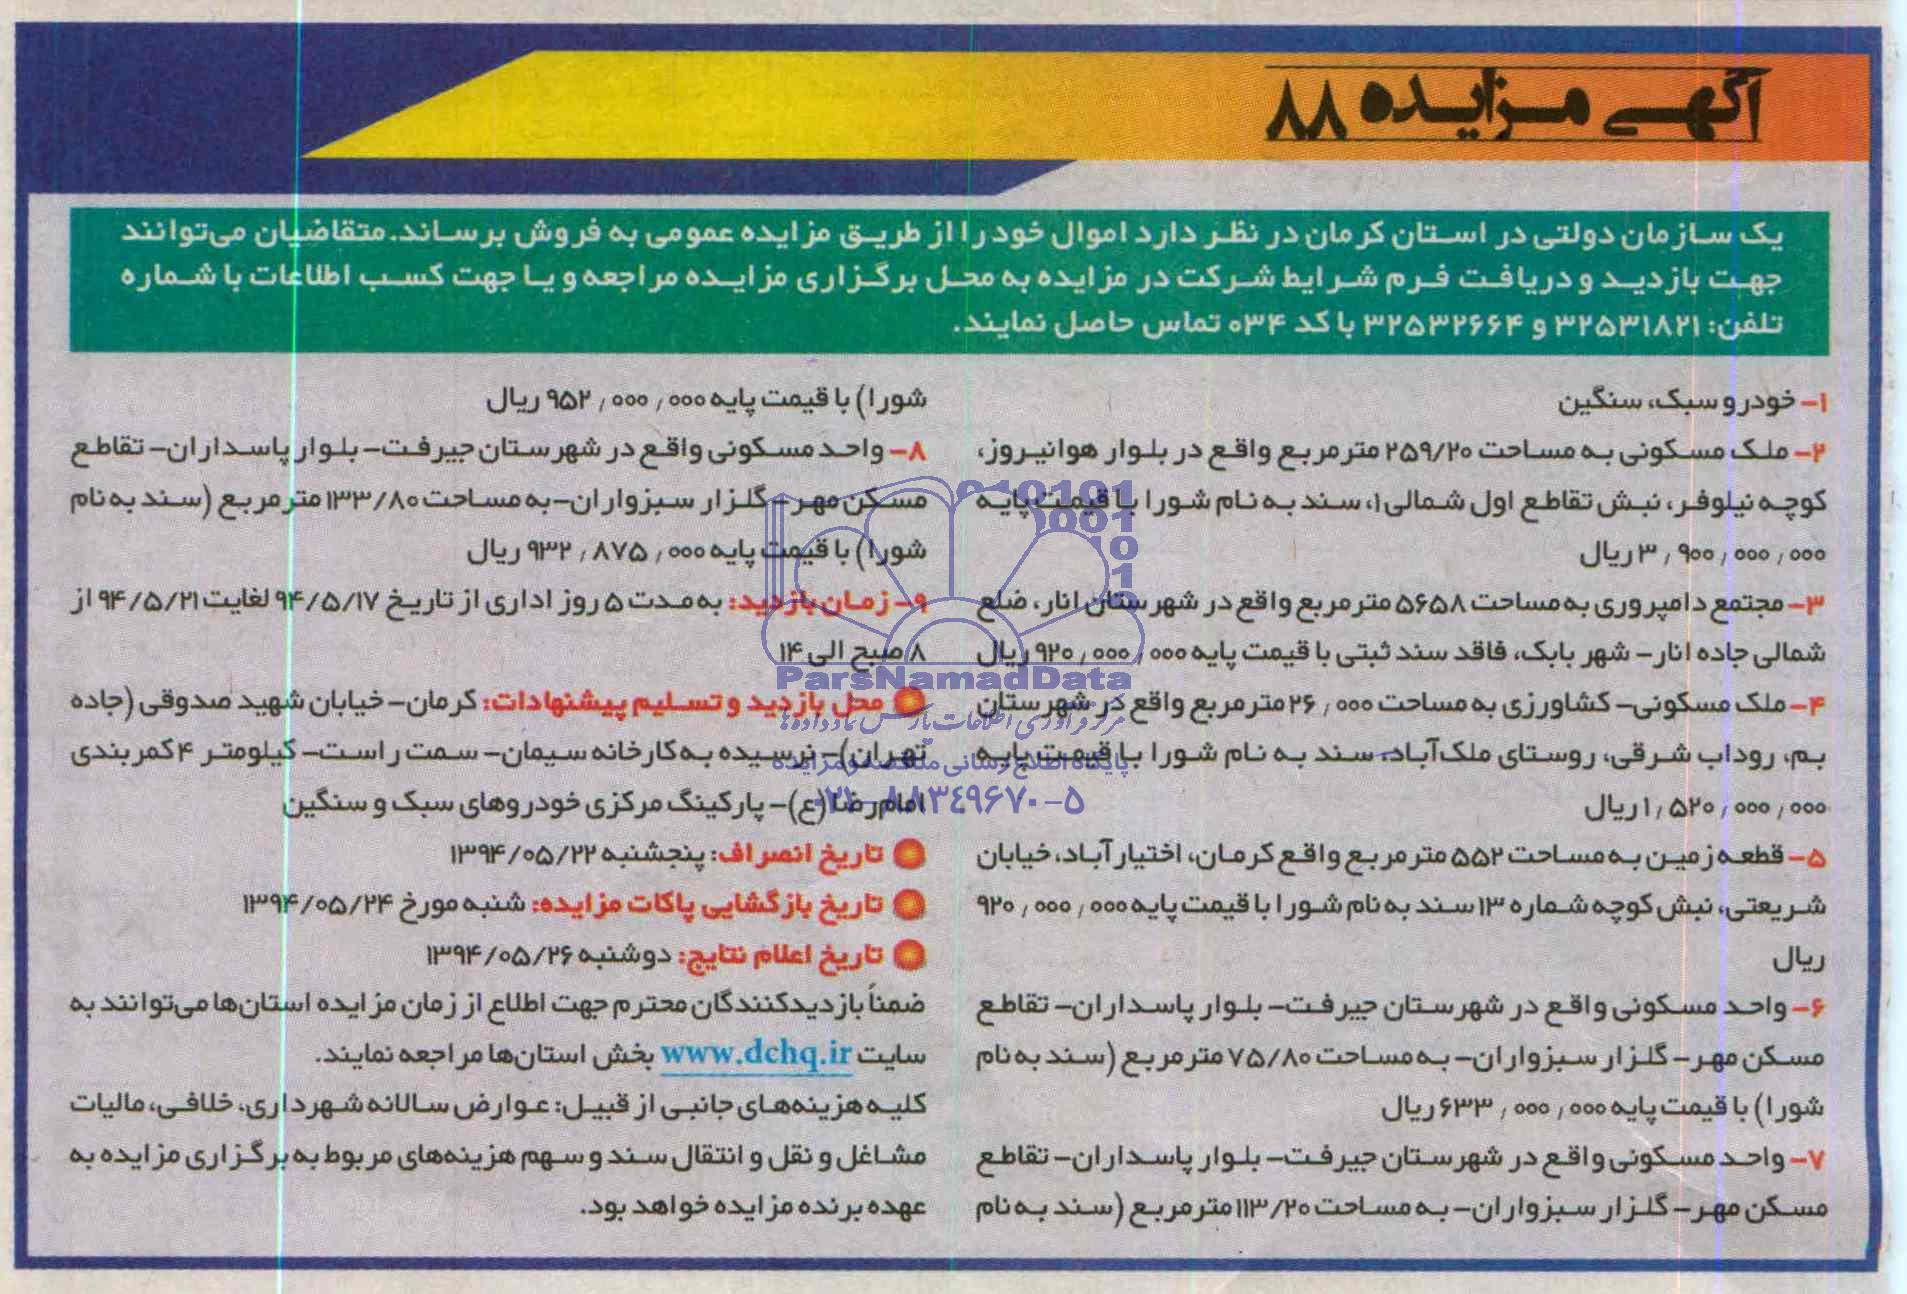 آگهی مزایده ۸۸
یک سازمان دولتی در استان کرمان در نظر دارد اموال خود را از طریق مزایده عمومی به فروش برساند. متقاضیان می‌توانند
جهت بازدید و دریافت فرم شرایط شرکت در مزایده به محل برگزاری مزایده مراجعه و یا جهت کسب اطلاعات با شماره
تلفن: ۳۲۵۳۱۸۲۱ و ۳۲۵۳۲۶۶۴ با کد ۰۳۴ تماس حاصل نمایند.
۱- خودرو سبک، سنگین
۲- ملک مسکونی به مساحت ۲۵۹/۲۰ مترمربع واقع در بلوار هوانیروز،
کوچه نیلوفر، نبش تقاطع اول شمالی ۱، سند به نام شورا با قیمت پایه
۳٫۹۰۰٫۰۰۰٫۰۰۰ ریال
۳- مجتمع دامپروری به مساحت ۵۶۵۸ مترمربع واقع در شهرستان انار، ضلع
شمالی جاده انار- شهر بابک، فاقد سند ثبتی با قیمت پایه ۹۲۰٫۰۰۰٫۰۰۰ ریال
۴- ملک مسکونی- کشاورزی به مساحت ۲۶٫۰۰۰ مترمربع واقع در شهرستان
بم، روداب شرقی، روستای ملک‌آباد، سند به نام شورا با قیمت پایه
۱٫۵۲۰٫۰۰۰٫۰۰۰ ریال
۵- قطعه زمین به مساحت ۵۵۲ مترمربع واقع کرمان، اختیارآباد، خیابان
شریعتی، نبش کوچه شماره ۱۳ سند به نام شورا با قیمت پایه ۹۲۰٫۰۰۰٫۰۰۰
ریال
۶- واحد مسکونی واقع در شهرستان جیرفت- بلوار پاسداران- تقاطع
مسکن مهر- گلزار سبزواران- به مساحت ۷۵/۸۰ مترمربع (سند به نام
شورا) با قیمت پایه ۶۳۳٫۰۰۰٫۰۰۰ ریال
۷- واحد مسکونی واقع در شهرستان جیرفت- بلوار پاسداران- تقاطع
مسکن مهر- گلزار سبزواران- به مساحت ۱۱۳/۲۰ مترمربع (سند به نام
شورا) با قیمت پایه ۹۵۲٫۰۰۰٫۰۰۰ ریال
۸- واحد مسکونی واقع در شهرستان جیرفت- بلوار پاسداران- تقاطع
مسکن مهر- گلزار سبزواران- به مساحت ۱۳۳/۸۰ مترمربع (سند به نام
شورا) با قیمت پایه ۹۳۲٫۸۷۵٫۰۰۰ ریال
۹- زمان بازدید: به مدت ۵ روز اداری از تاریخ ۹۴/۵/۱۷ لغایت ۹۴/۵/۲۱ از
۸ صبح الی ۱۴
محل بازدید و تسلیم پیشنهادات: کرمان- خیابان شهید صدوقی (جاده
تهران)- نرسیده به کارخانه سیمان- سمت راست- کیلومتر ۴ کمربندی
امام‌رضا (ع)- پارکینگ مرکزی خودروهای سبک و سنگین
تاریخ انصراف: پنجشنبه ۱۳۹۴/۰۵/۲۲
تاریخ بازگشایی پاکات مزایده: شنبه مورخ ۱۳۹۴/۰۵/۲۴
تاریخ اعلام نتایج: دوشنبه ۱۳۹۴/۰۵/۲۶
ضمناً بازدیدکنندگان محترم جهت اطلاع از زمان مزایده استان‌ها می‌توانند به
سایت www.dchq.ir بخش استان‌ها مراجعه نمایند.
کلیه هزینه‌های جانبی از قبیل: عوارض سالانه شهرداری، خلافی، مالیات
مشاغل و نقل و انتقال سند و سهم هزینه‌های مربوط به برگزاری مزایده به
عهده برنده مزایده خواهد بود.
ParsNamadData
مرکز فرآوری اطلاعات پارس نماد داده‌ها
پایگاه اطلاع رسانی مناقصه و مزایده
۰۲۱-۸۸۳۴۹۶۷۰-۵